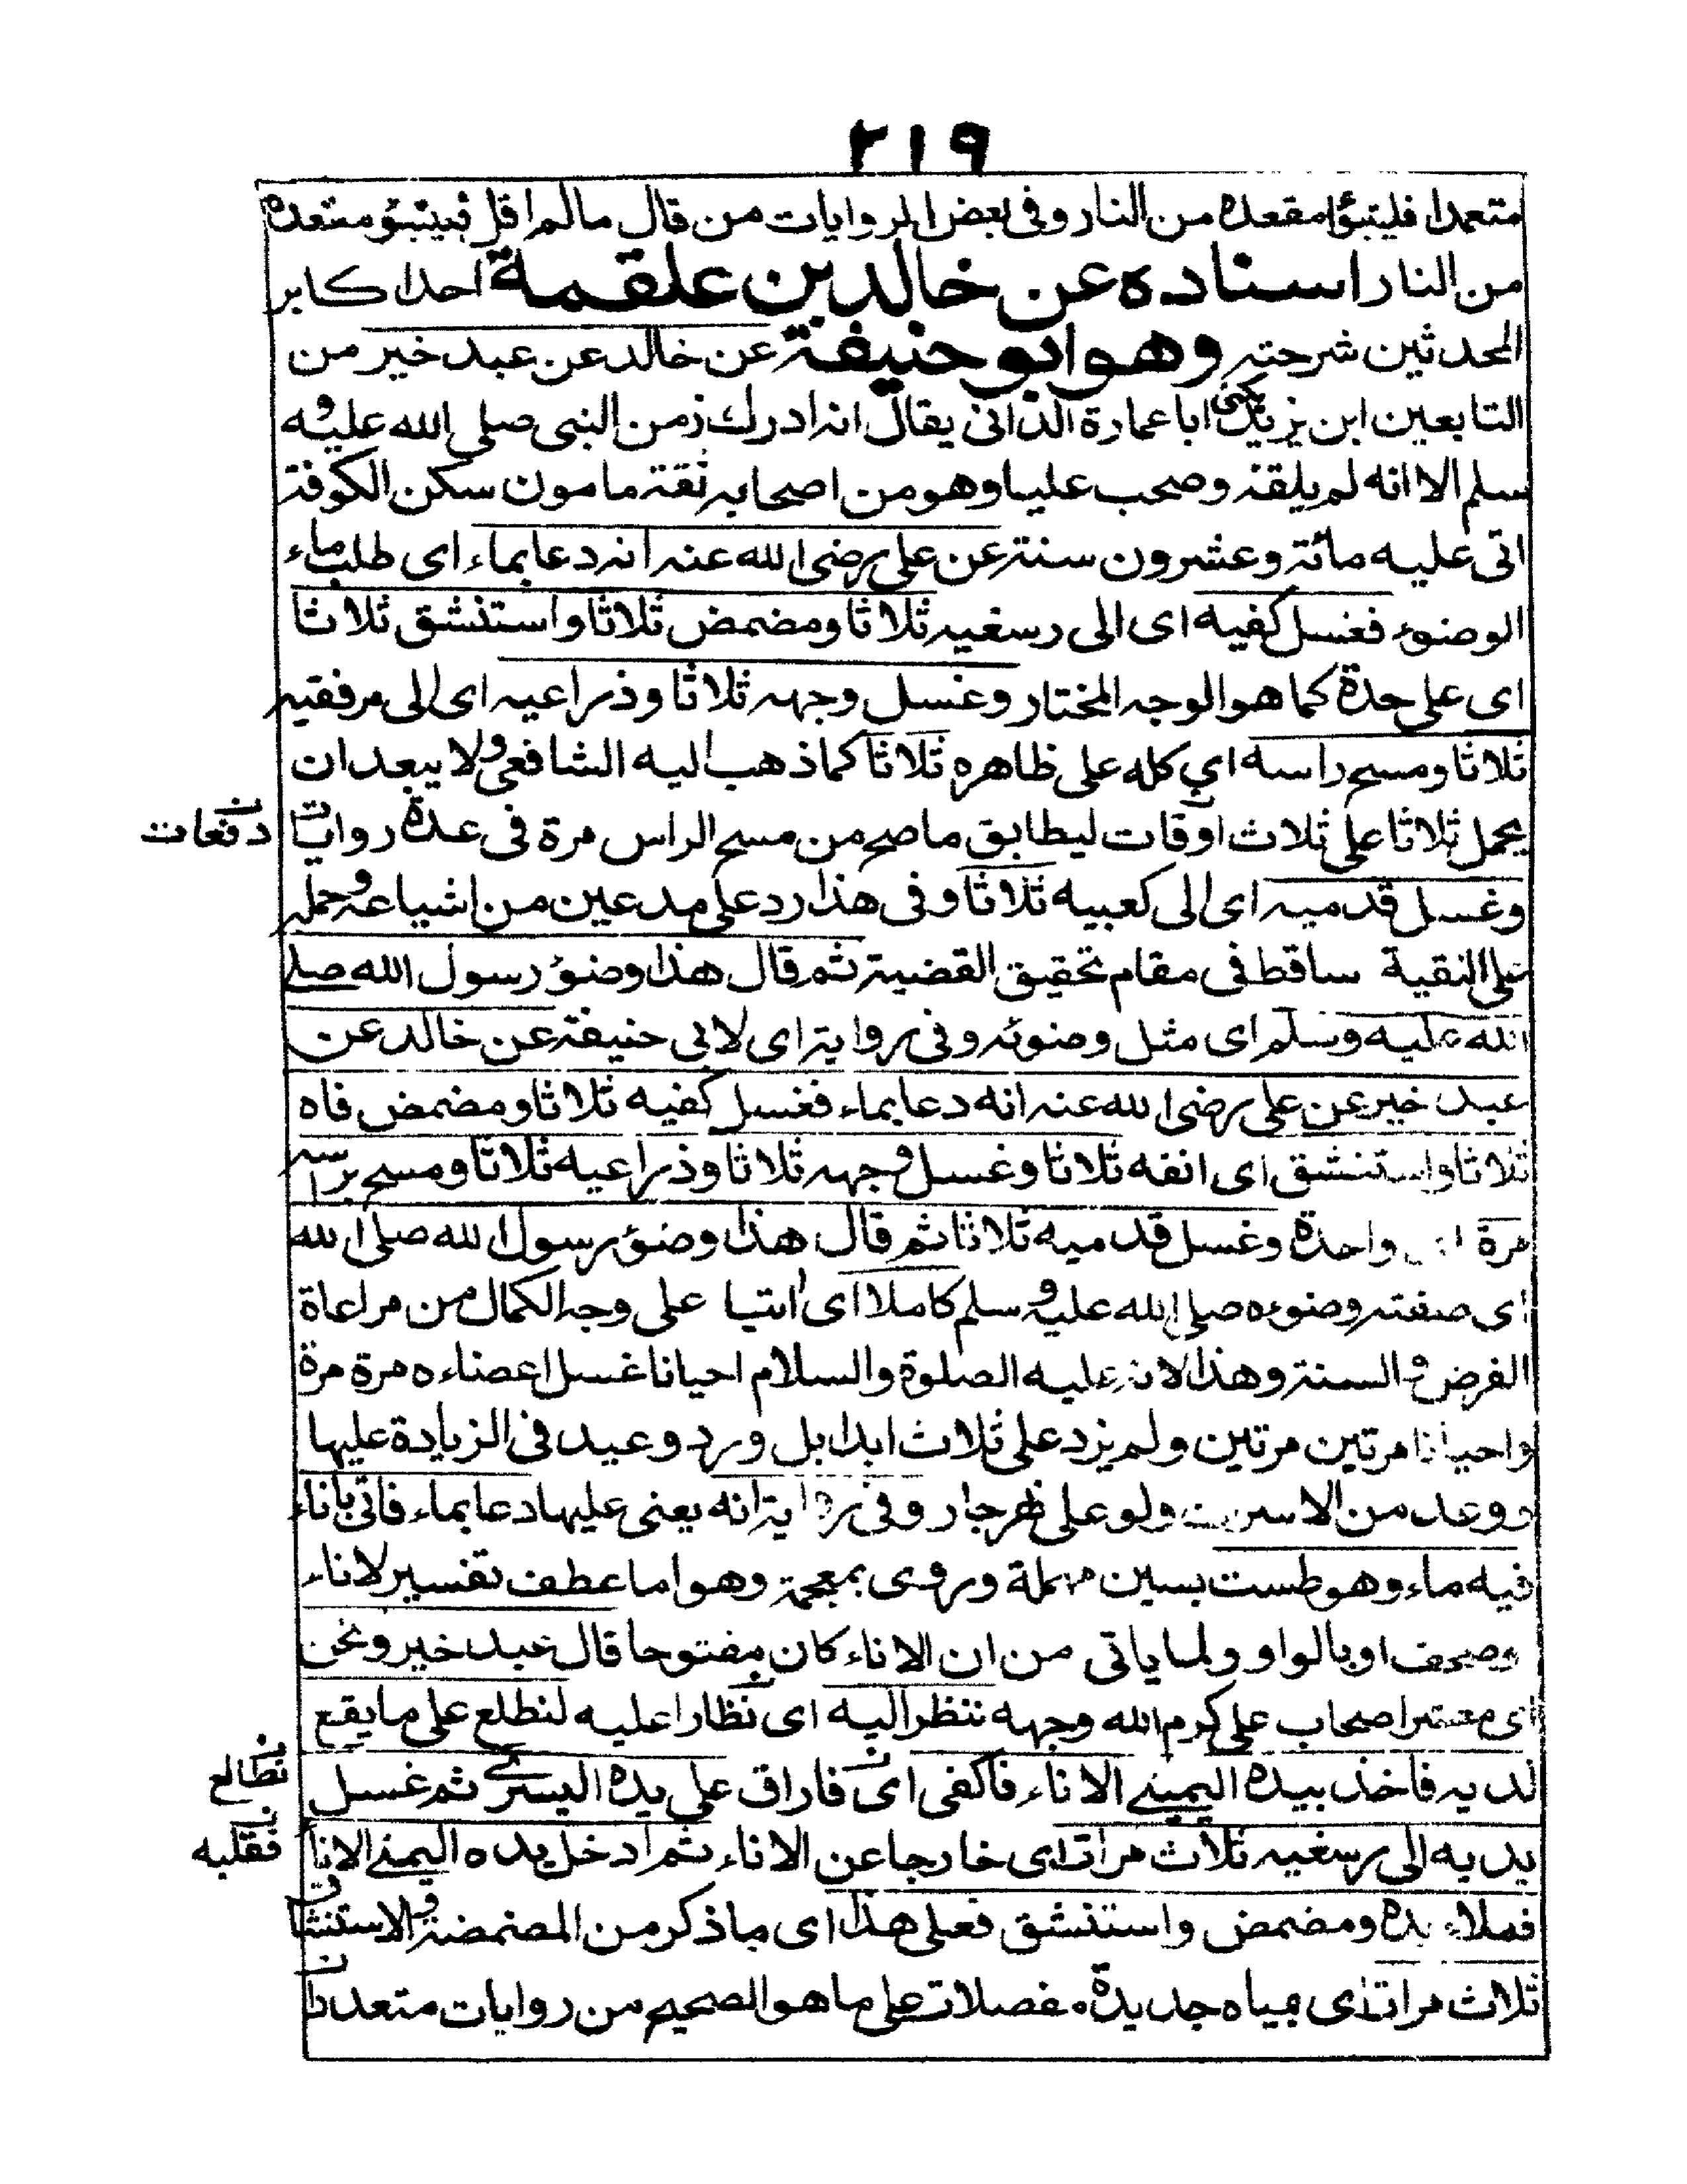 ٢١٩
متعمدا فليتبؤا مقعده من النار وفى بعض الروايات من قال مالم اقل فيتبؤ مقعده
من النار اسناده عن خالد بن علقمة احد اكابر
المحدثين شرحته وهو ابو حنيفة عن خالد عن عبد خير من
التابعين ابن يزيد يكنى ابا عمارة الذانى يقال انه ادرك زمن النبى صلى الله عليه و
سلم الا انه لم يلقه وصحب عليا وهو من اصحابه ثقة مامون سكن الكوفة
اتى عليه مائة وعشرون سنة عن على رضى الله عنه انه دعا بماء اى طلب ماء
الوضوء فغسل كفيه اى الى رسغيه ثلاثا ومضمض ثلاثا واستنشق ثلاثا
اى على حدة كما هو الوجه المختار وغسل وجهه ثلاثا وذراعيه اى الى مرفقيه
ثلاثا ومسح راسه اى كله على ظاهره ثلاثا كما ذهب اليه الشافعى ولا يبعد ان
يحمل ثلاثا على ثلاث اوقات ليطابق ما صح من مسح الراس مرة فى عدة روايات
دفعات
وغسل قدميه اى الى كعبيه ثلاثا وفى هذا رد على مدعين من اشياعه وحمله
على التقية ساقط فى مقام تحقيق القضية ثم قال هذا وضؤ رسول الله صلى
الله عليه وسلم اى مثل وضوئه وفى رواية اى لابى حنيفة عن خالد عن
عبد خير عن على رضى الله عنه انه دعا بماء فغسل كفيه ثلاثا ومضمض فاه
ثلاثا واستنشق اى انفه ثلاثا وغسل وجهه ثلاثا وذراعيه ثلاثا ومسح براسه
مرة اى واحدة وغسل قدميه ثلاثا ثم قال هذا وضؤ رسول الله صلى الله
اى صفته وضوءه صلى الله عليه و سلم كاملا اى اتيا على وجه الكمال من مراعاة
الفرض و السنة وهذا لانه عليه الصلوة والسلام احيانا غسل اعضاءه مرة مرة
واحيانا مرتين مرتين ولم يزد على ثلاث ابدا بل ورد وعيد فى الزيادة عليها
ووعد من الاسرف ولو على نهر جار وفى رواية انه يعنى عليها دعا بماء فاتى باناء
فيه ماء وهو طست بسين مهملة وروى بمعجمة وهو اما عطف تفسير لاناء
وصحف او بالواو ولما ياتى من ان الاناء كان مفتوحا قال عبد خير ونحن
اى معتبر اصحاب على كرم الله وجهه ننظر اليه اى نظارا عليه لنطلع على ما يقع
نطالع
لديه فاخذ بيده اليمنے الاناء فاكفى اى فاراق على يده اليسرے ثم غسل
فقلبه
يديه الى رسغيه ثلاث مرات اى خارجا عن الاناء ثم ادخل يده اليمنے الانا
فملاء يده ومضمض واستنشق فعلى هذا اى ما ذكر من المضمضة والاستنشاق
ثلاث مرات اى بمياه جديدة مفصلات على ما هو الصحيح من روايات متعددة